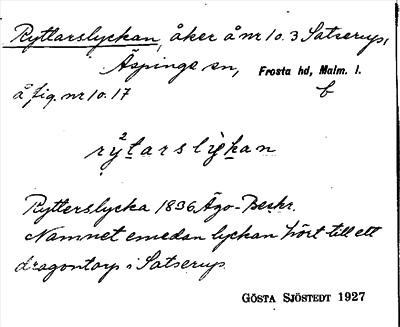 Ryttarslyckan, åker å nr 10. 3 Satserup,
Äspinge sn, Frosta hd, Malm. l.
å fig. nr 10. 17 b
Rytterslycka 1836 Ägo-Beskr.
Namnet emedan lyckan hört till ett
dragontorp i Satserup.
GÖSTA SJÖSTEDT 1927